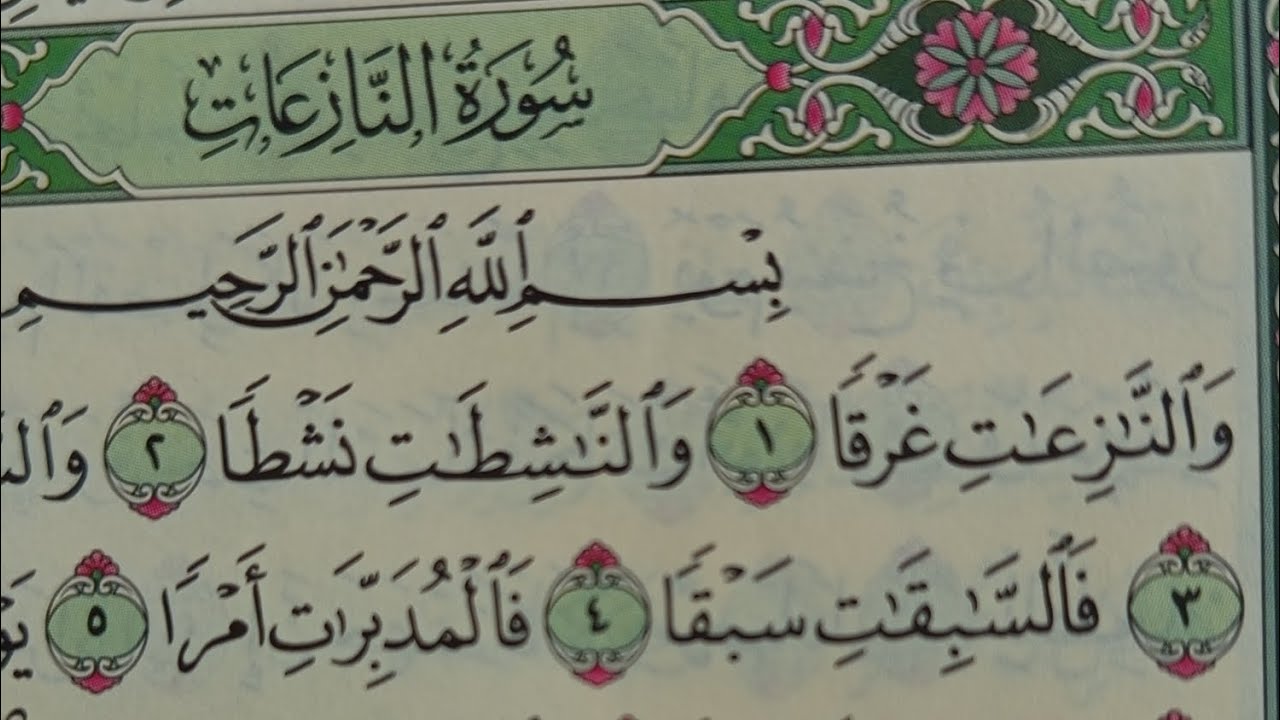 سُورَةُ النَّازِعَاتِ
بِسْمِ ٱللَّهِ ٱلرَّحْمَٰنِ ٱلرَّحِيمِ
وَٱلنَّـٰزِعَـٰتِ غَرْقًا ١ وَٱلنَّـٰشِطَـٰتِ نَشْطًا ٢
٣ فَٱلسَّـٰبِقَـٰتِ سَبْقًا ٤ فَٱلْمُدَبِّرَٰتِ أَمْرًا ٥